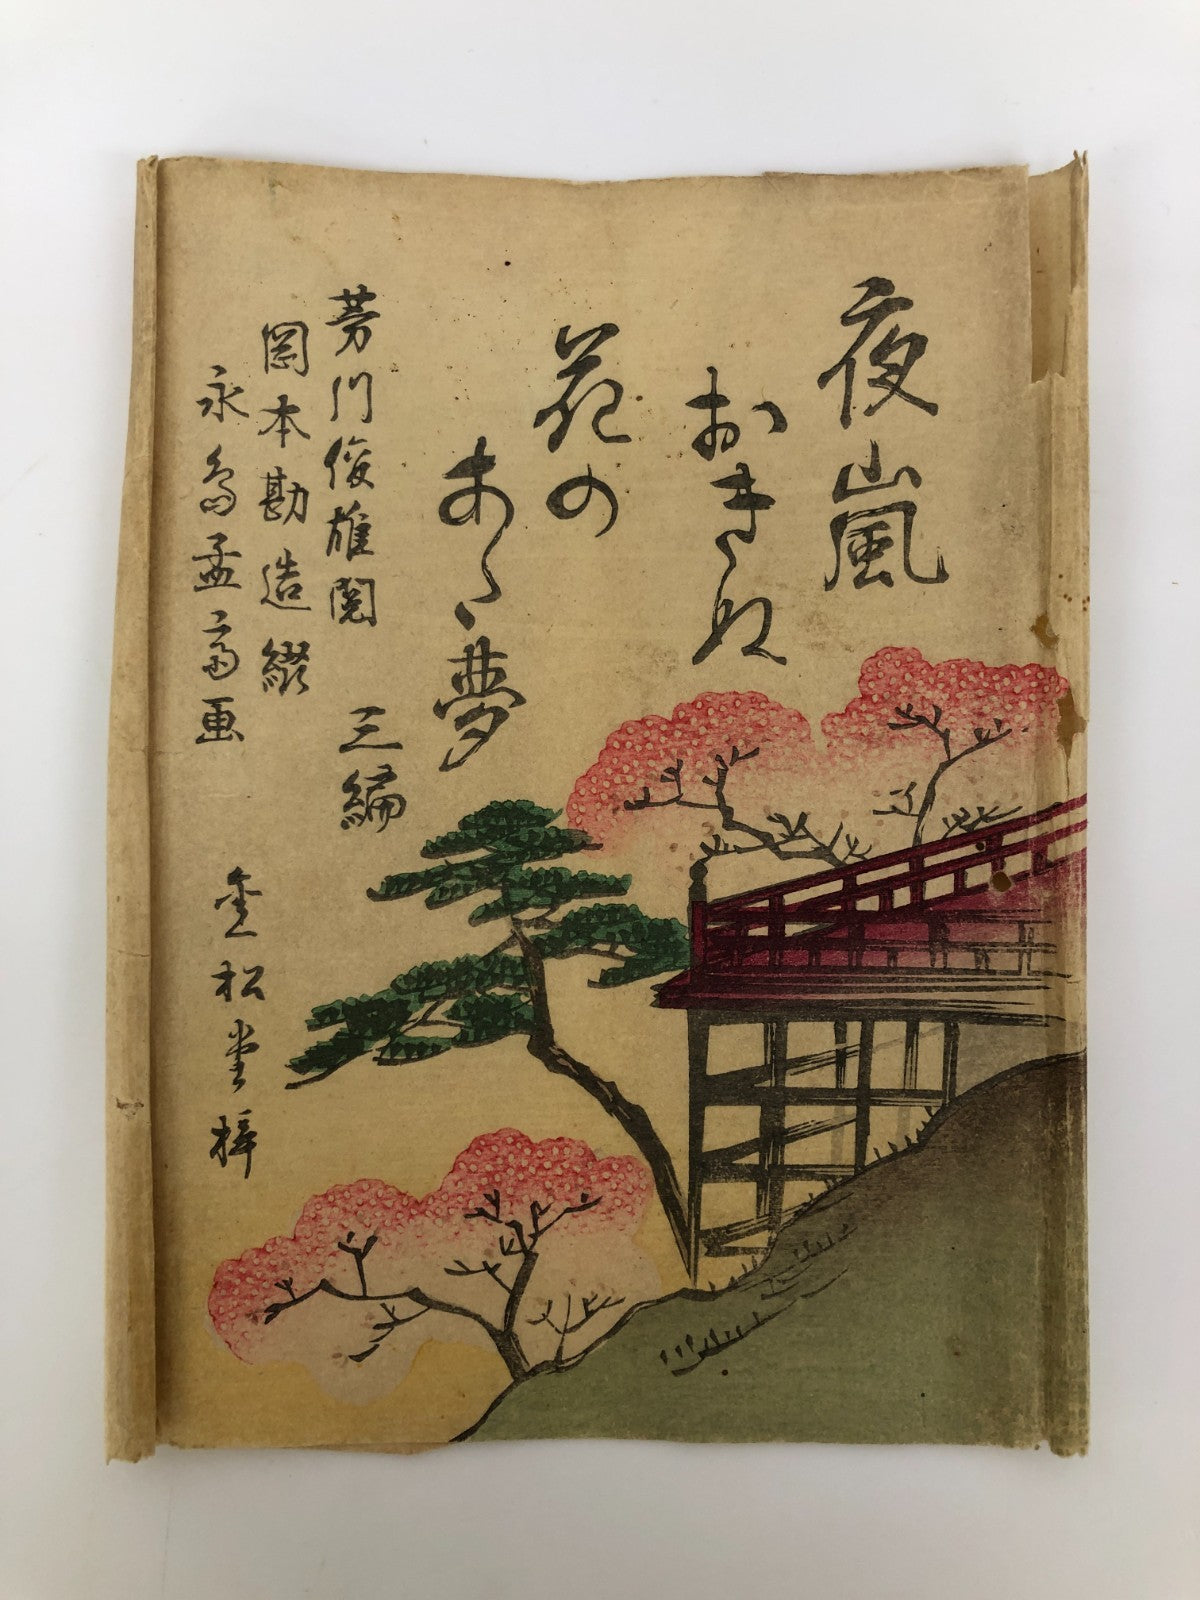 夜嵐
おきぬ
花の
あだ夢
三編
芳川俊雄閲
岡本勘造綴
永島孟斎画
金松堂梓